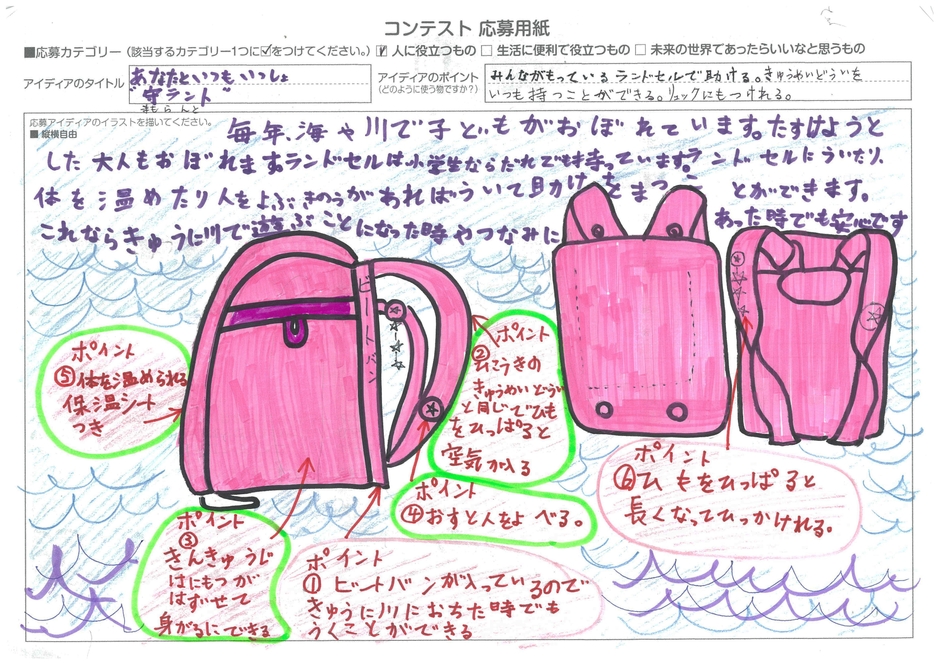 コンテスト 応募用紙
■応募カテゴリー（該当するカテゴリー1つに☑をつけてください。） ☑ 人に役立つもの □ 生活に便利で役立つもの □ 未来の世界であったらいいなと思うもの
アイディアのタイトル
あなたといつもいっしょ
"守ラント"
まもらんと
アイディアのポイント
（どのように使う物ですか？）
みんながもっているランドセルで助ける。きゅうめいどういを
いつも持つことができる。リュックにもつけれる。
応募アイディアのイラストを描いてください。
■ 縦横自由
毎年、海や川で子どもがおぼれています。たすけようと
した大人もおぼれます。ランドセルは小学生ならだれでも持っています。ランドセルにういたり、
体を温めたり人をよぶきのうがあればういて助けをまつことができます。
これならきゅうに川で遊ぶことになった時やつなみにあった時でも安心です
ビートバン
ポイント
⑤体を温められる
保温シート
つき
ポイント
②ひこうきの
きゅうめいどうい
と同じでひも
をひっぱると
空気が入る
ポイント
④おすと人をよべる。
ポイント
⑥ひもをひっぱると
長くなってひっかけれる。
ポイント
③
きんきゅうじ
はにもつが
はずせて
身がるにできる
ポイント
①ビートバンが入っているので
きゅうに川におちた時でも
うくことができる